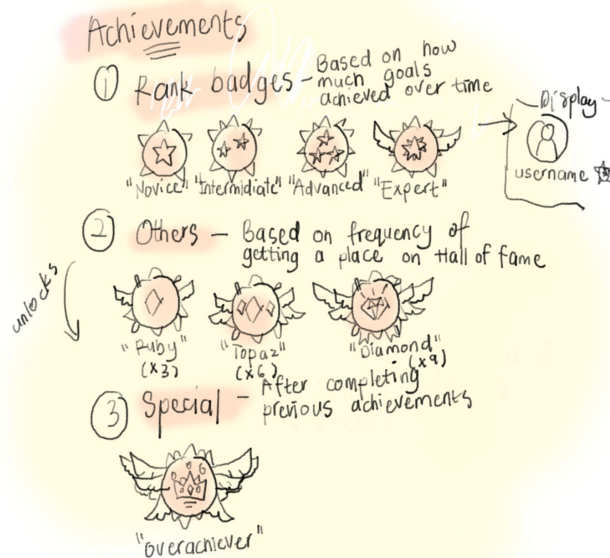 Achievements
① Rank badges - Based on how
much goals
achieved over time
Display -
username
"Novice" "Intermidiate" "Advanced" "Expert"
② Others - Based on frequency of
getting a place on Hall of fame
unlocks
"Ruby" "Topaz" "Diamond"
(x3) (x6) (x9)
③ Special - After completing
previous achievements
"overachiever"